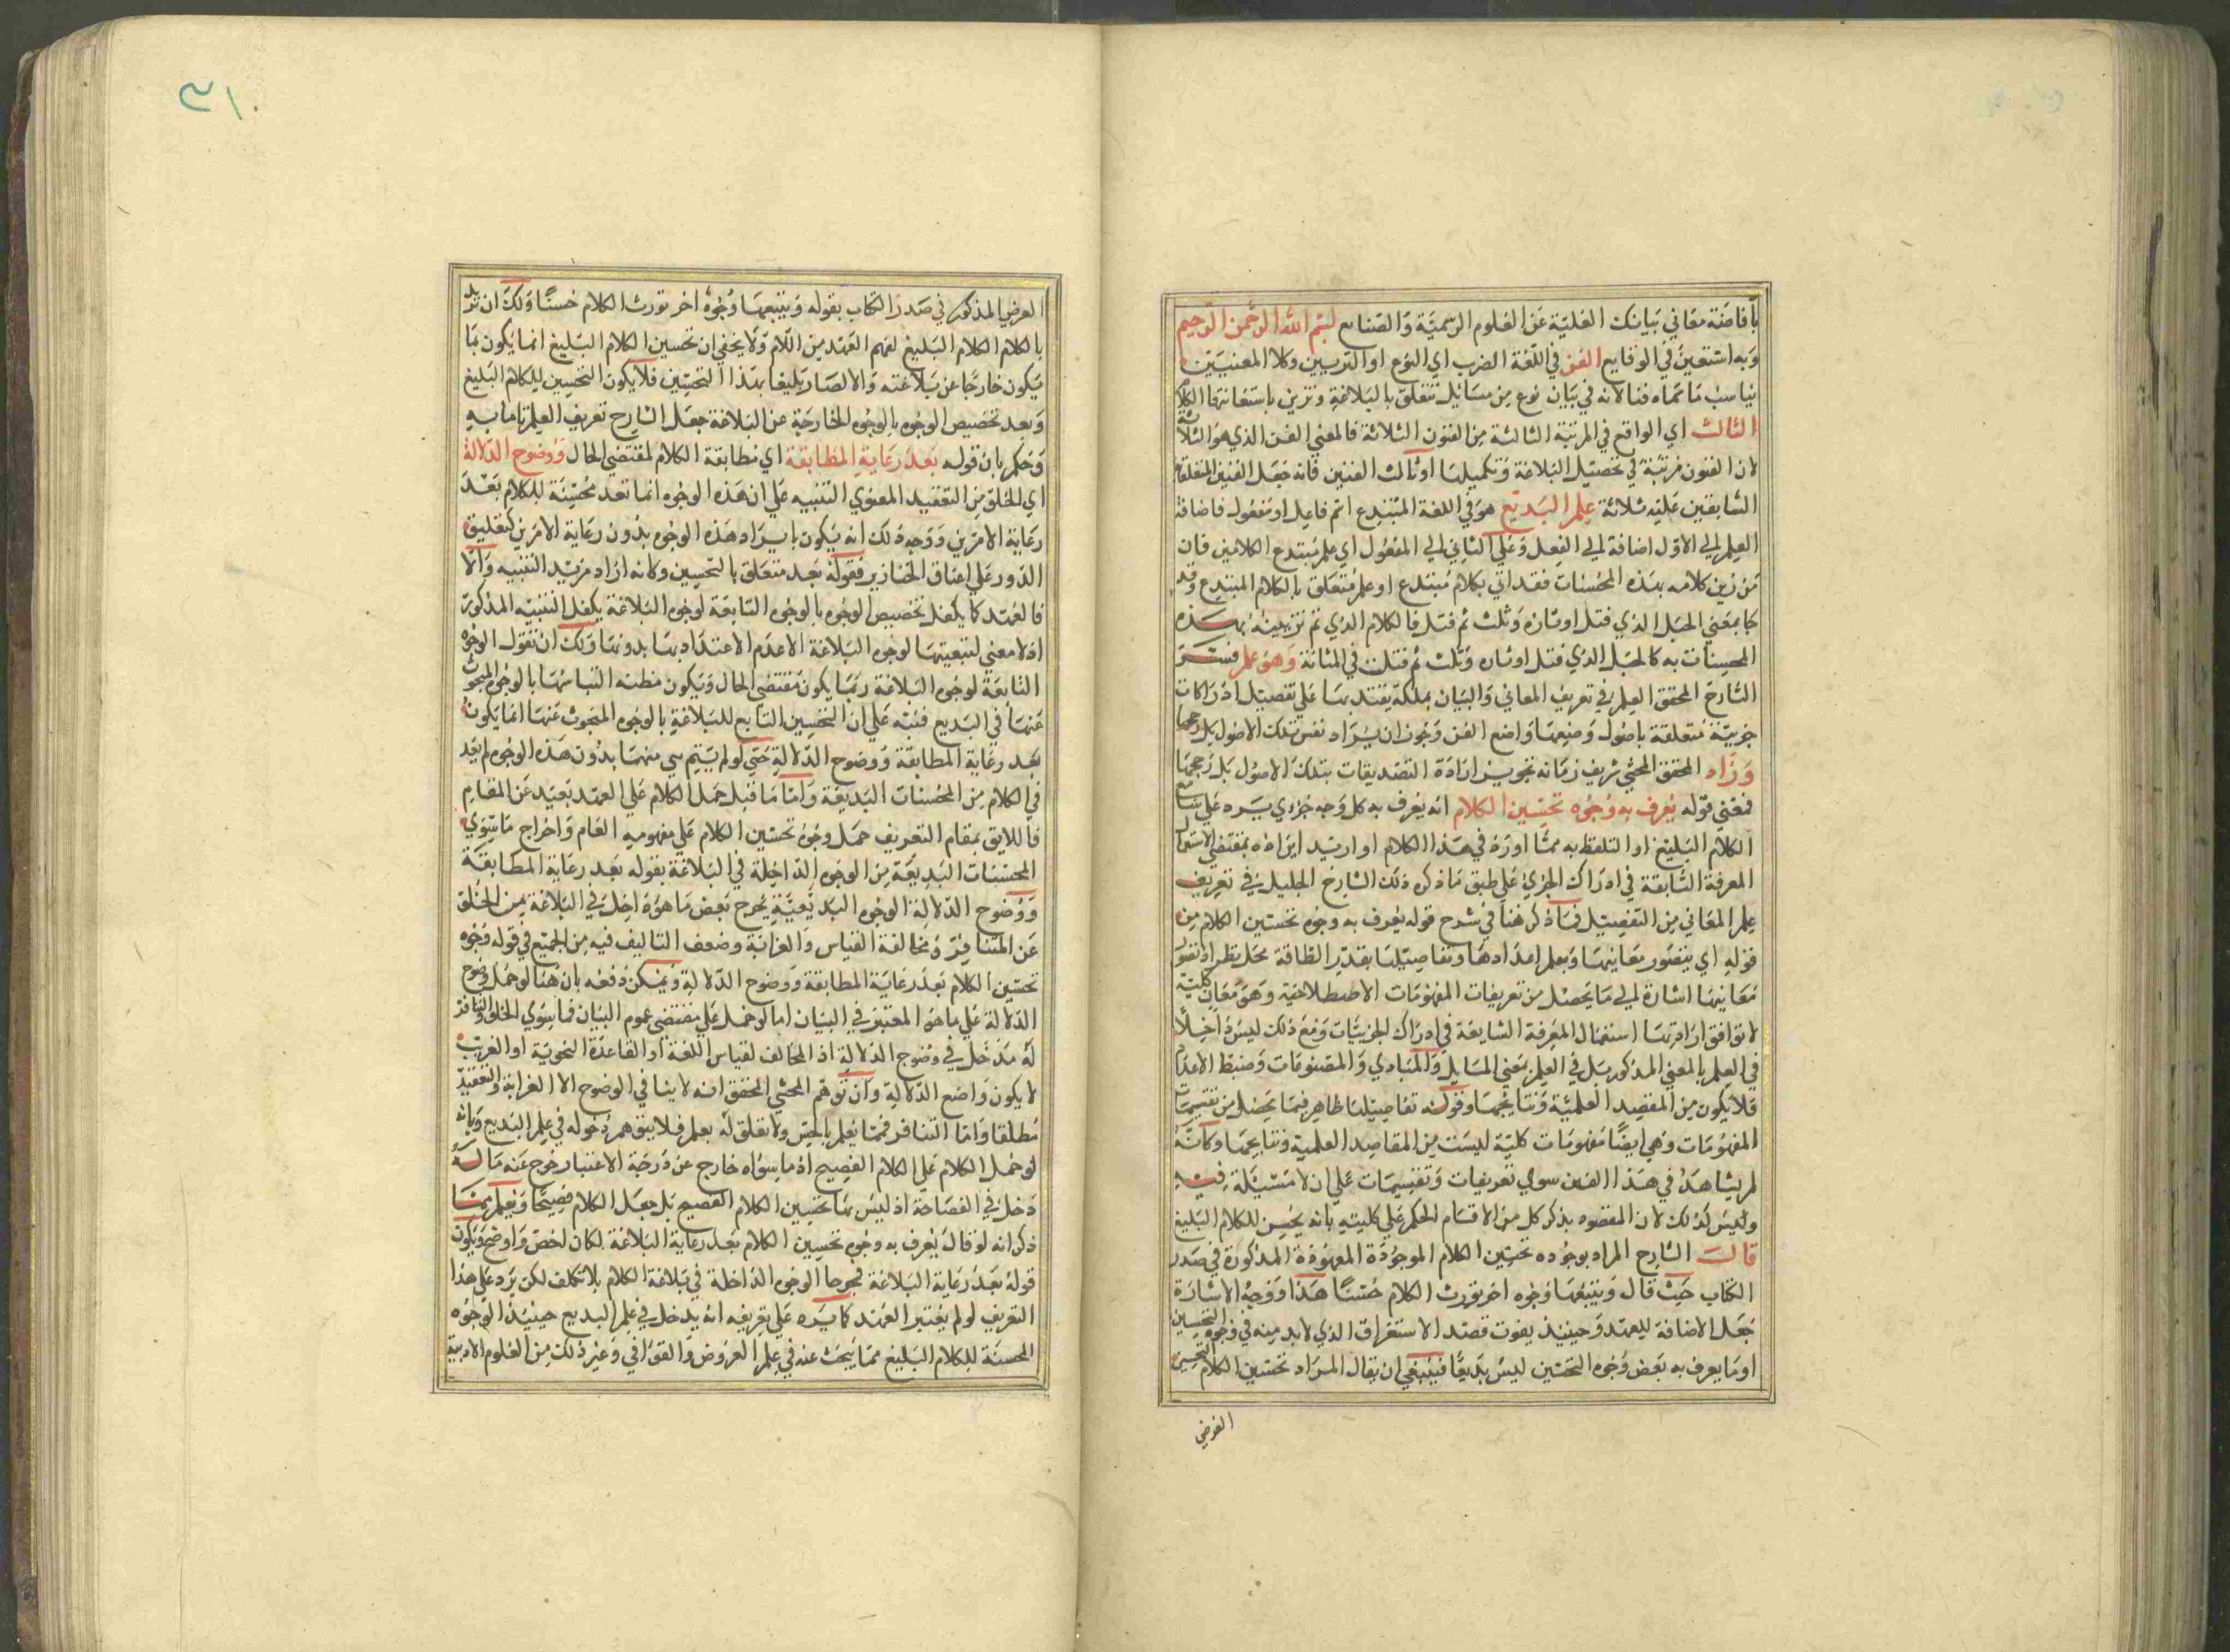 بافاضة معاني بيانك الغلية عن العلوم الرسمية والصنايع بسم الله الرحمن الرحيم
وبه استعين في الوقايع الفن في اللغة الضرب اي النوع او التزيين وكلا المعنيين
يناسب ما سماه فنا لانه في بيان نوع من مسائل تتعلق بالبلاغة وتزين باستعانتها الكلام
الثالث اي الواقع في المرتبة الثالثة من الفنون الثلاثة فالمعني الفن الذي هو الثلاثة
لان الفنون مرتبة في تحصيل البلاغة وتكميلها او ثالث الفنين فانه جعل الفنين المتعلقين
السابقين عليه ثلاثة علم البديع هو في اللغة المبتدع اسم فاعل او مفعول فاضافة
العلم الي الاول اضافة الي الفعل وعلي الثاني الي المفعول اي علم مبتدع الكلامين فان
من زين كلامه بهذه المحسنات فقد اتي بكلام مبتدع او علم متعلق بالكلام المبتدع وقد
جا بمعني الحبل الذي فتل اوثاره وثلث ثم فتل فالكلام الذي تم تزيينه بهذه
المحسنات به كالحبل الذي فتل اوثاره وثلث ثم فتلت في المتانة وهو علم فسر
الشارح المحقق العلم في تعريف المعاني والبيان بملكة يقتدر بها علي تفصيل ادراكات
جزيية متعلقة باصول وضعها واضع الفن وجوز ان يراد نفس تلك الاصول بل رجحها
وزاد المحقق المحشي شريف زمانه تجويز ارادة التصديقات بتلك الاصول بل رجحها
فمعني قوله يعرف به وجوه تحسين الكلام انه يعرف به كل وجه جزءي يرد علي سامع
الكلام البليغ او التلفظ به مما اورد في هذا الكلام او اريد ايراده بمقتضي استعمال
المعرفة الشايعة في ادراك الجزئي علي طبق ما ذكره ذلك الشارح الجليل في تعريف
علم المعاني من التفصيل فما ذكر هنا في شرح قوله يعرف به وجوه تحسين الكلام من
قوله اي يتصور معانيها ويعلم اعدادها وتفاصيلها بقدر الطاقة محل نظر اذ تصور
معانيها اشارة الي ما يحصل من تعريفات المفهومات الاصطلاحية وهو معان كلية
لا توافق ارادتها استعمال المعرفة الشايعة في ادراك الجزئيات ومع ذلك ليس داخلا
في العلم بالمعني المذكور بل في العلم بمعني المسايل والمبادي والموضوعات وضبط الاعداد
فلا يكون من المقصد العلمية ونتايجها وقوله تفاصيلها ظاهر فيما يحصل من تقسيمات
المفهومات وهي ايضا مفهومات كلية ليست من المقاصد العلمية ونتايجها وكانه
لم يشاهد في هذا الفن سوي تعريفات وتقسيمات علي ان لا مسئلة فيه
وليس كذلك لان المقصود بذكر كل من الاقسام الحكم علي كليته بانه يحسن للكلام البليغ
قال الشارح المراد بوجوه تحسين الكلام الموجودة المعهودة المذكورة في صدر
الكتاب حيث قال ويتبعها وجوه اخر تورث الكلام حسنا هذا ووجه الاشارة
جعل الاضافة للعهد وحينيذ يفوت قصد الاستغراق الذي لابد منه في وجوه التحسين
او ما يعرف به بعض وجوه التحسين ليس بديعا فينبغي ان يقال المراد تحسين الكلام التحسين
العرضي
٣١٠
العرضي المذكور في صدر الكتاب بقوله ويتبعها وجوه اخر تورث الكلام حسنا ولك ان تريد
بالكلام الكلام البليغ لفهم العهد من اللام ولا يخفي ان تحسين الكلام البليغ انما يكون بما
يكون خارجا عن بلاغته والا لصار بليغا بهذا التحسين فلا يكون التحسين للكلام البليغ
وبعد تخصيص الوجوه بالوجوه الخارجة عن البلاغة جعل الشارح تعريف العلم تاما به
وحكم بان قوله بعد رعاية المطابقة اي مطابقة الكلام لمقتضي الحال ووضوح الدلالة
اي الخلو من التعقيد المعنوي التنبيه علي ان هذه الوجوه انما تعد محسنة للكلام بعد
رعاية الامرين ووجه ذلك انه يكون بايراد هذه الوجوه بدون رعاية الامرين كتعليق
الدرر علي اعناق الخنازير فقوله بعد متعلق بالتحسين ولانه اراد مزيد التنبيه والا
فالعهد كما يكفل تخصيص الوجوه بالوجوه التابعة لوجوه البلاغة يكفل التنبيه المذكور
اذ لا معني لتبعيتها لوجوه البلاغة الا عدم الاعتداد بها بدونها ولك ان تقول الوجوه
التابعة لوجوه البلاغة ربما يكون مقتضي الحال ويكون مظنه التباسها بالوجوه المبحوث
عنها في البديع فنبه علي ان التحسين التابع للبلاغة بالوجوه المبحوث عنها انما يكون
بعد رعاية المطابقة ووضوح الدلالة حتي لو لم يتيم سي منهما بدون هذه الوجوه لم يعد
في الكلام من المحسنات البديعة واما ما قبل حمل الكلام علي العهد بعيد عن المقام
فاللايق بمقام التعريف حمل وجوه تحسين الكلام علي مفهومه العام واخراج ما سوي
المحسنات البديعة من الوجوه الداخلة في البلاغة بقوله بعد رعاية المطابقة
ووضوح الدلالة الوجوه البديعية يخرج بعض ما هو داخل في البلاغة من الخلو
عن التنافر ومخالفة القياس والغرابة وضعف التاليف فيه من الجميع في قوله وجوه
تحسين الكلام بعد رعاية المطابقة ووضوح الدلالة ويمكن دفعه بان هنا لو حمل وضوح
الدلالة علي ما هو المعتبر في البيان اما لو حمل علي مقتضي عموم البيان فما سوي الخلو والتنافر
له مدخل في وضوح الدلالة اذ المخالف لقياس اللغة او القاعدة النحوية او الغريب
لا يكون واضع الدلالة وان توهم المحشي المحقق انه لا ينافي الوضوح الا الغرابة والتعقيد
مطلقا واما التنافر فمما يعلم بالحس ولا تعلق له بعلم فلا يتوهم دخوله في علم البديع وبانه
لو حمل الكلام علي الكلام الفصيح اذ ما سواه خارج عن درجة الاعتبار خرج عنه ما له
دخل في الفصاحة اذ ليس بها تحسين الكلام الفصيح بل جعل الكلام فصيحا ويعلم مما
ذكر انه لو قال يعرف به وجوه تحسين الكلام بعد رعاية البلاغة لكان اخص واوضح ويكون
قوله بعد رعاية البلاغة مخرجا الوجوه الداخلة في بلاغة الكلام بلا تكلف لكن يرد علي هذا
التعريف لو لم يعتبر العهد كما يرد علي تعريفه انه يدخل في علم البديع حينئذ الوجوه
المحسنة للكلام البليغ مما يبحث عنه في علم العروض والقوافي وغير ذلك من العلوم الادبية